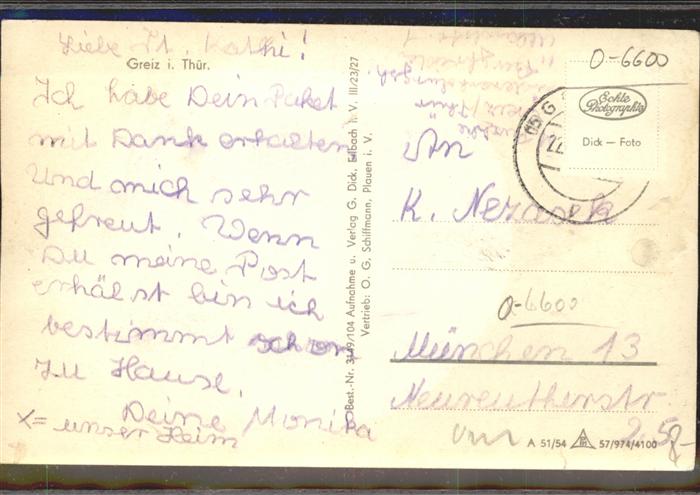 Liebe Tt. Kathi!
Greiz i. Thür.
Ich habe Dein Paket
mit Dank erhalten
Und mich sehr
gefreut. Wenn
Du meine Post
erhälst bin ich
bestimmt schon
zu Hause.
Deine Monika
x= unser Heim
Best.-Nr. 3149/104 Aufnahme u. Verlag G. Dick, Erlbach i. V. III/23/27
Vertrieb: O. G. Schiffmann, Plauen i. V.
O-6600
Echte
Photographie
Dick — Foto
An
K. Nerasek
O-6600
München 13
Neureutherstr
A 51/54 57/974/4100
2.50